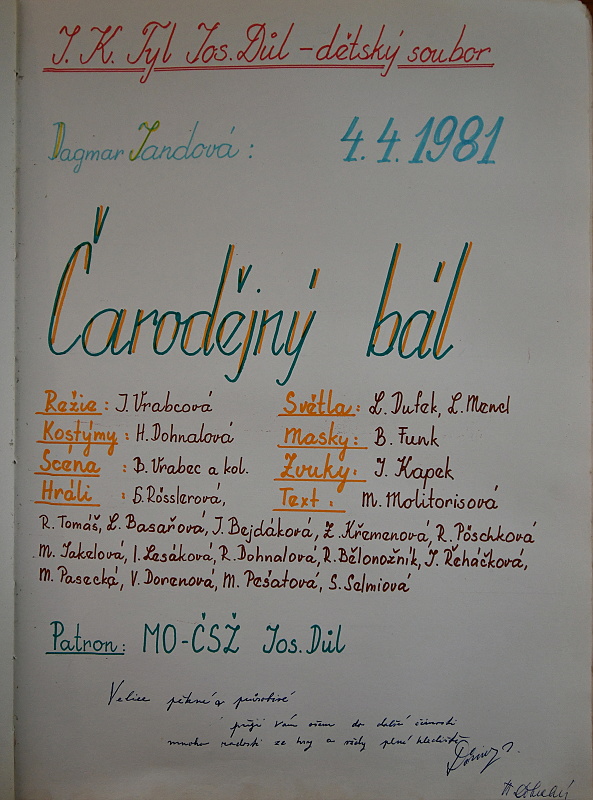 J. K. Tyl Jos. Důl - dětský soubor
Dagmar Jandová : 4. 4. 1981
Čarodějný bál
Režie : J. Vrabcová Světla : L. Dufek, L. Mencl
Kostýmy : H. Dohnalová Masky : B. Funk
Scéna : B. Vrabec a kol. Zvuky : J. Kapek
Hráli : S. Rösslerová, Text : M. Molitorisová
R. Tomáš, L. Basařová, J. Bejdáková, Z. Křemenová, R. Pöschková
M. Jakelová, I. Lesáková, R. Dohnalová, R. Bělonožník, J. Řeháčková,
M. Pasecká, V. Dorenová, M. Pešatová, S. Selmiová
Patron : MO-ČSŽ Jos. Důl
Velice pěkné a působivé
přeji vám všem do další činnosti
mnoho radosti ze hry a vždy plné hlediště